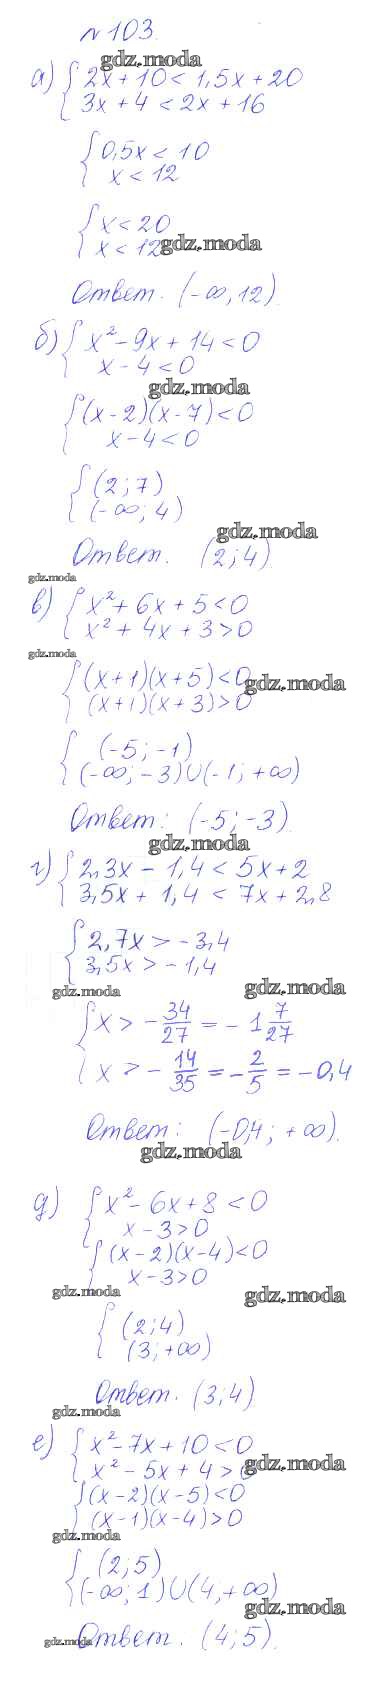 №103.
gdz.moda
а) { 2x + 10 < 1,5x + 20
3x + 4 < 2x + 16
{ 0,5x < 10
x < 12
{ x < 20
x < 12
gdz.moda
Ответ. (-∞, 12).
б) { x² - 9x + 14 < 0
x - 4 < 0
gdz.moda
{ (x - 2)(x - 7) < 0
x - 4 < 0
{ (2; 7)
(-∞; 4)
gdz.moda
Ответ. (2; 4)
gdz.moda
в) { x² + 6x + 5 < 0
x² + 4x + 3 > 0
gdz.moda
{ (x + 1)(x + 5) < 0
gdz.moda
(x + 1)(x + 3) > 0
{ (-5; -1)
(-∞; -3)∪(-1; +∞)
Ответ: (-5; -3).
gdz.moda
г) { 2,3x - 1,4 < 5x + 2
3,5x + 1,4 < 7x + 2,8
{ 2,7x > -3,4
3,5x > -1,4
gdz.moda
gdz.moda
{ x > -34/27 = -1 7/27
x > -14/35 = -2/5 = -0,4
Ответ: (-0,4; +∞).
gdz.moda
д) { x² - 6x + 8 < 0
x - 3 > 0
{ (x - 2)(x - 4) < 0
x - 3 > 0
gdz.moda
gdz.moda
{ (2; 4)
(3; +∞)
Ответ. (3; 4)
gdz.moda
е) { x² - 7x + 10 < 0
x² - 5x + 4 > 0
gdz.moda
{ (x - 2)(x - 5) < 0
(x - 1)(x - 4) > 0
gdz.moda
{ (2; 5)
(-∞; 1)∪(4, +∞)
gdz.moda
Ответ: (4; 5).
gdz.moda